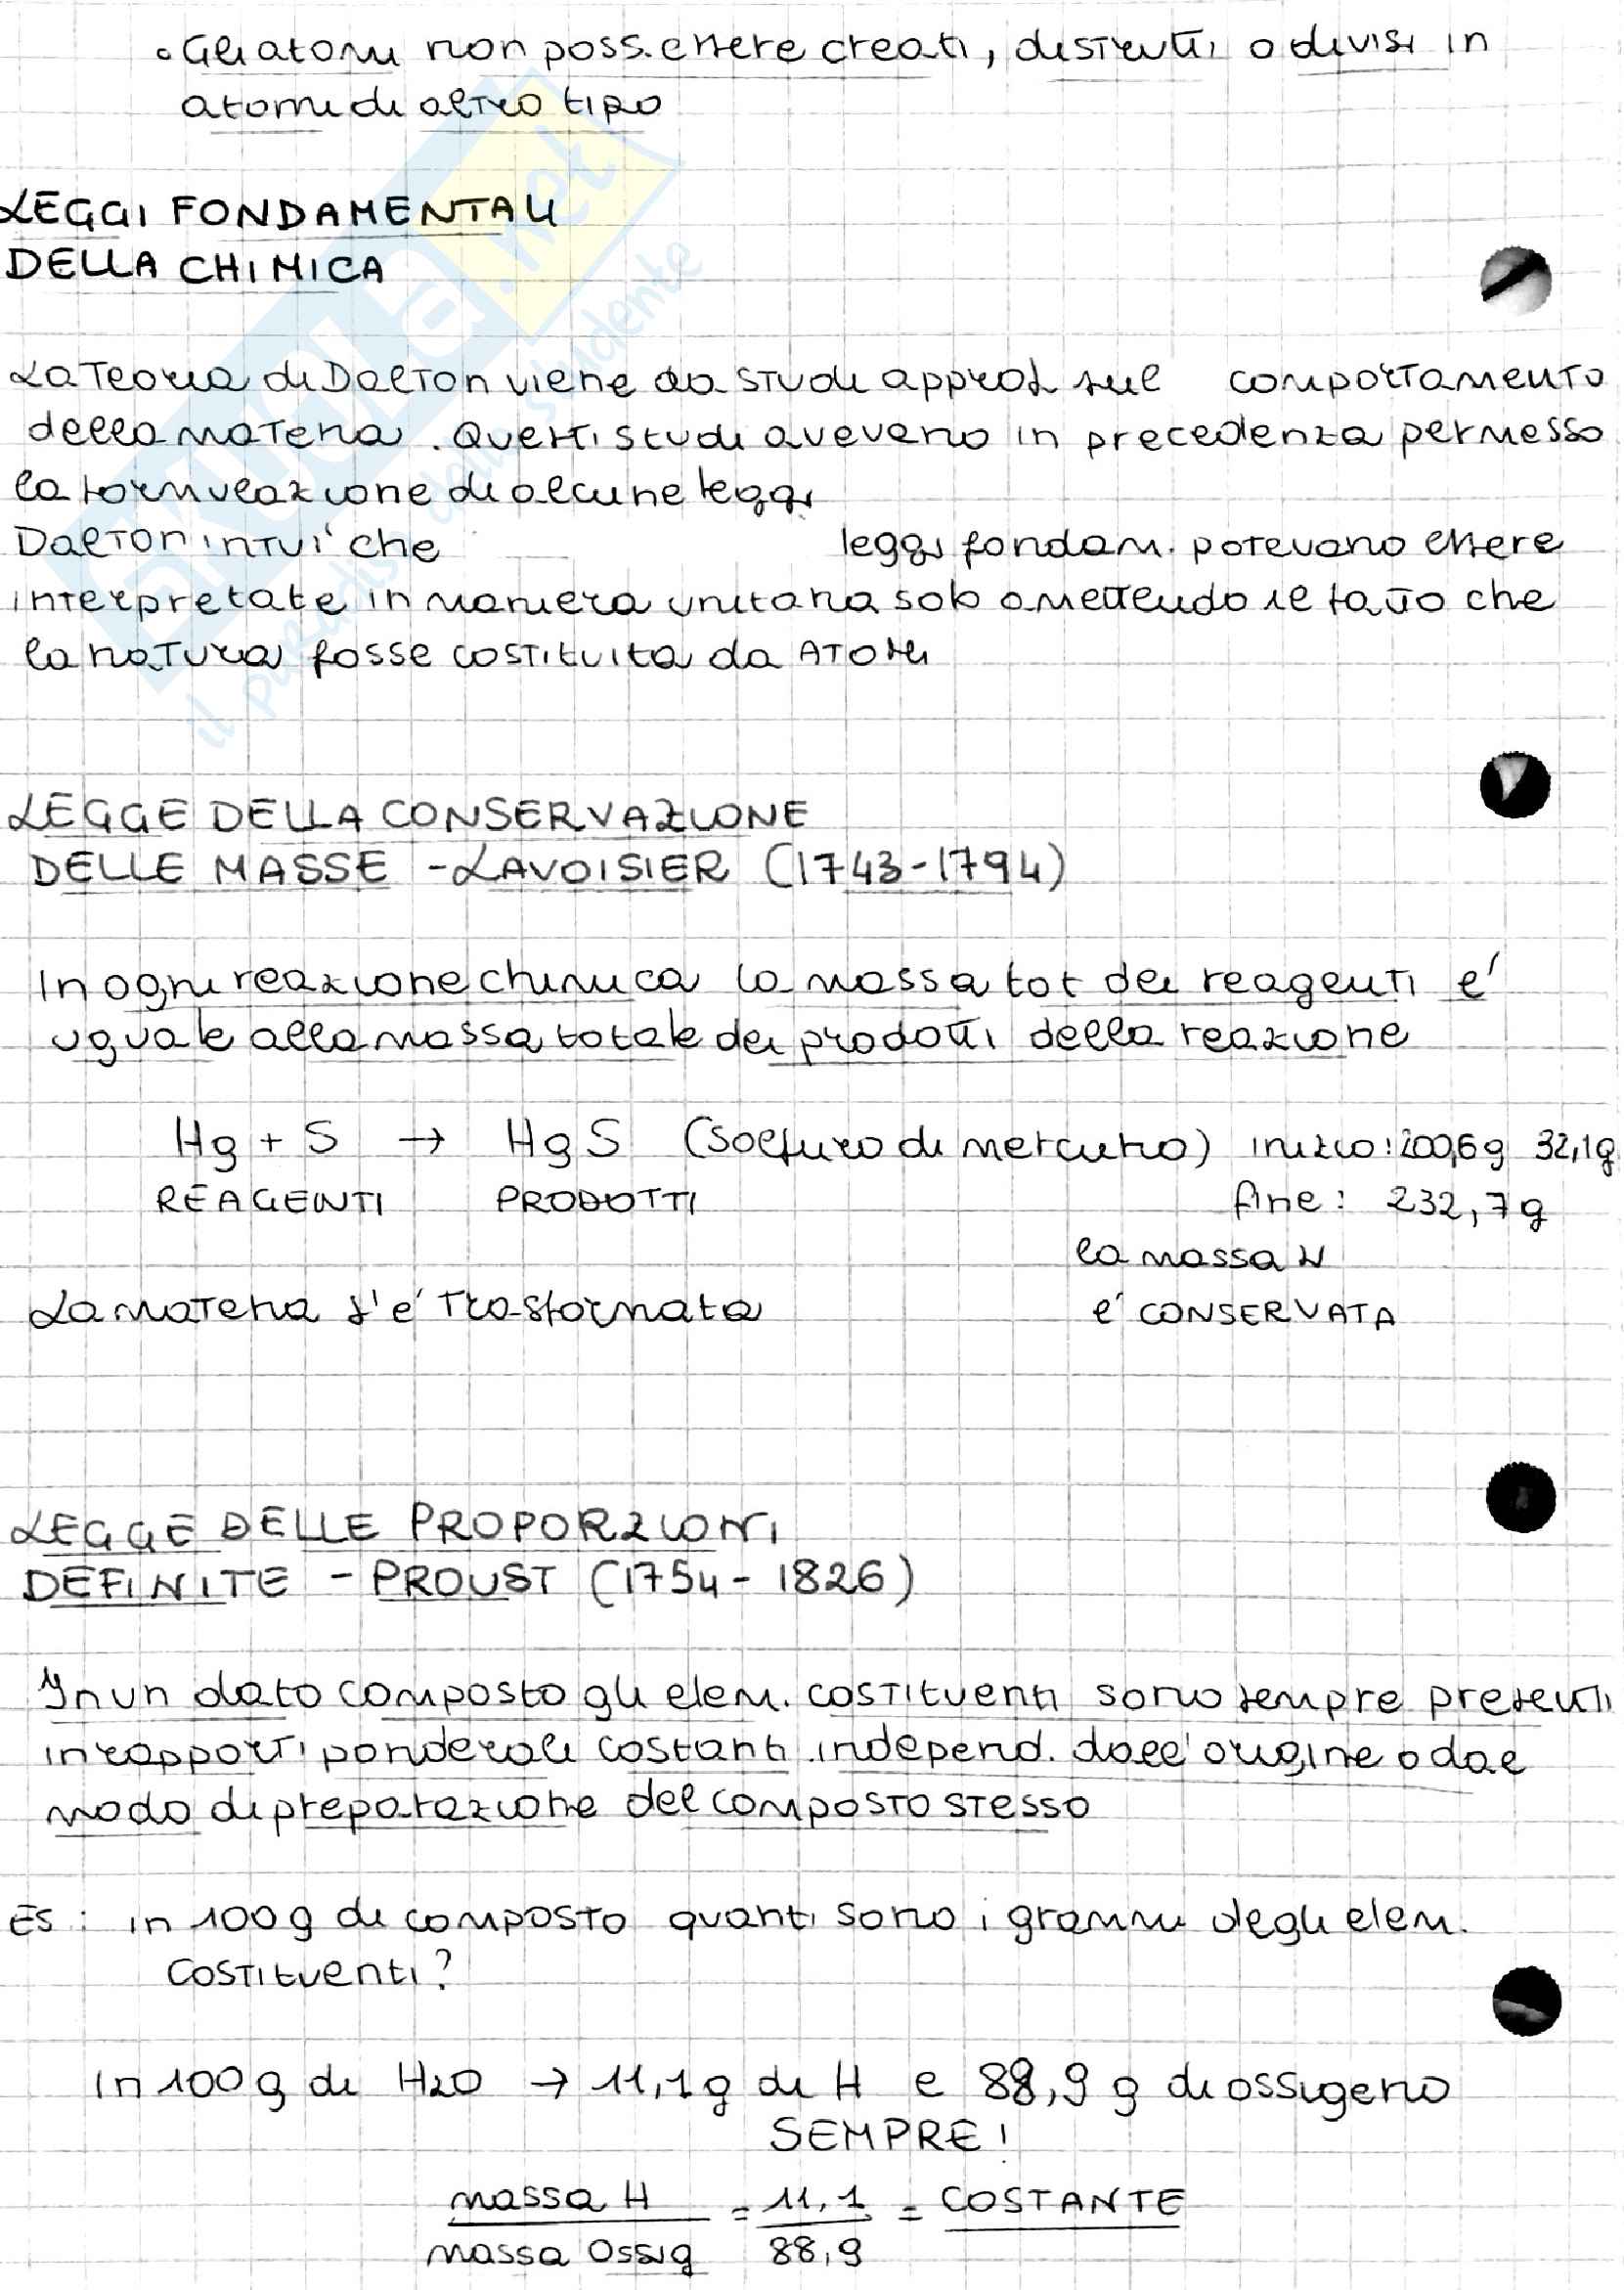 • Gli atomi non poss. essere creati, distrutti o divisi in
atomi di altro tipo
LEGGI FONDAMENTALI
DELLA CHIMICA
La Teoria di Dalton viene da studi approf sul comportamento
della materia. Questi studi avevano in precedenza permesso
la formulazione di alcune leggi
Dalton intuì che leggi fondam. potevano essere
interpretate in maniera unitaria solo ammettendo il fatto che
la natura fosse costituita da ATOMI
LEGGE DELLA CONSERVAZIONE
DELLE MASSE - LAVOISIER (1743-1794)
In ogni reazione chimica la massa tot dei reagenti e'
uguale alla massa totale dei prodotti della reazione
Hg + S → HgS (Solfuro di mercurio) inizio: 200,6g 32,1g
REAGENTI PRODOTTI fine: 232,7g
la massa si
La materia s'e' trasformata e' CONSERVATA
LEGGE DELLE PROPORZIONI
DEFINITE - PROUST (1754 - 1826)
In un dato composto gli elem. costituenti sono sempre presenti
in rapporti ponderali costanti independ. dall'origine o dal
modo di preparazione del composto stesso
ES: in 100g di composto quanti sono i grammi degli elem.
costituenti?
In 100g di H2O → 11,1g di H e 88,9 g di ossigeno
SEMPRE!
massa H = 11,1 = COSTANTE
massa Ossig 88,9
skuola.net
il paradiso dello studente